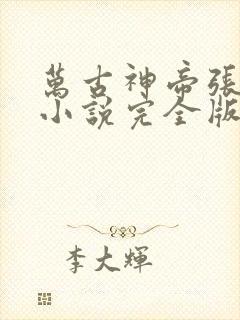 萬古神帝張
小說完全版
李大輝